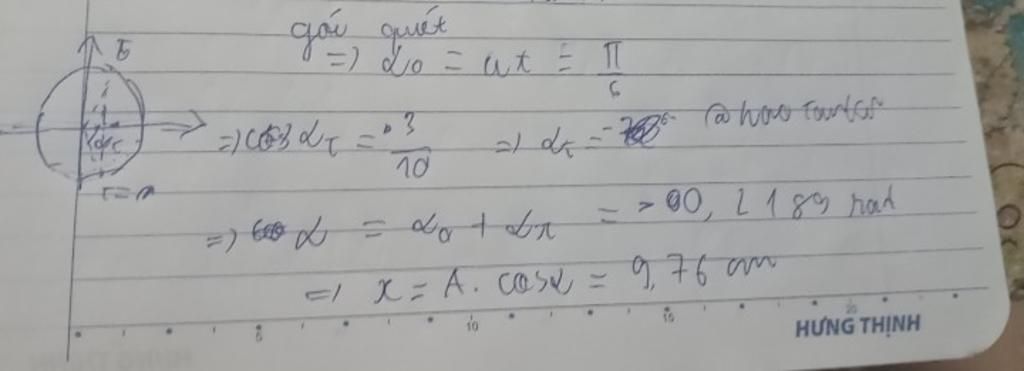 góc quét
=> α₀ = ωt = π/6
=> cos α_t = 3/10 => α_t = @hao
=> α = α₀ + = 0,2189 rad
=> x = A. cosα = 9,76 cm
5 10 15 20
HƯNG THỊNH